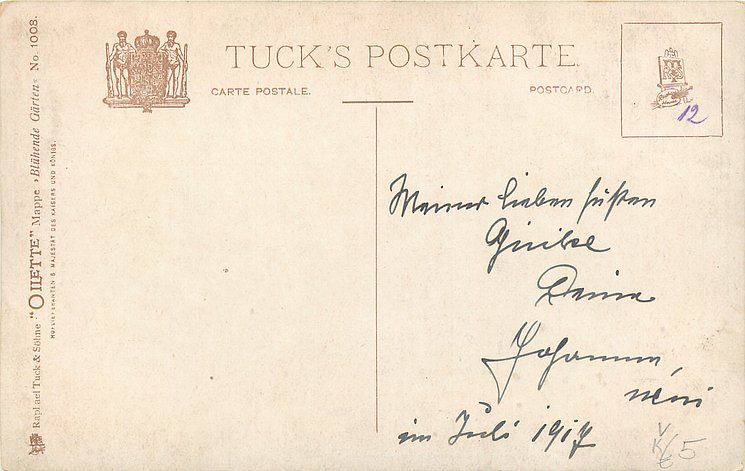 TUCK'S POSTKARTE.
CARTE POSTALE.
POSTCARD.
12
Raphael Tuck & Söhne "OILETTE" Mappe »Blühende Gärten« No. 1008.
HOFLIEFERANTEN S. MAJESTÄT DES KAISERS UND KÖNIGS.
Meiner lieben süßen
Deine
im Juli 1917
5